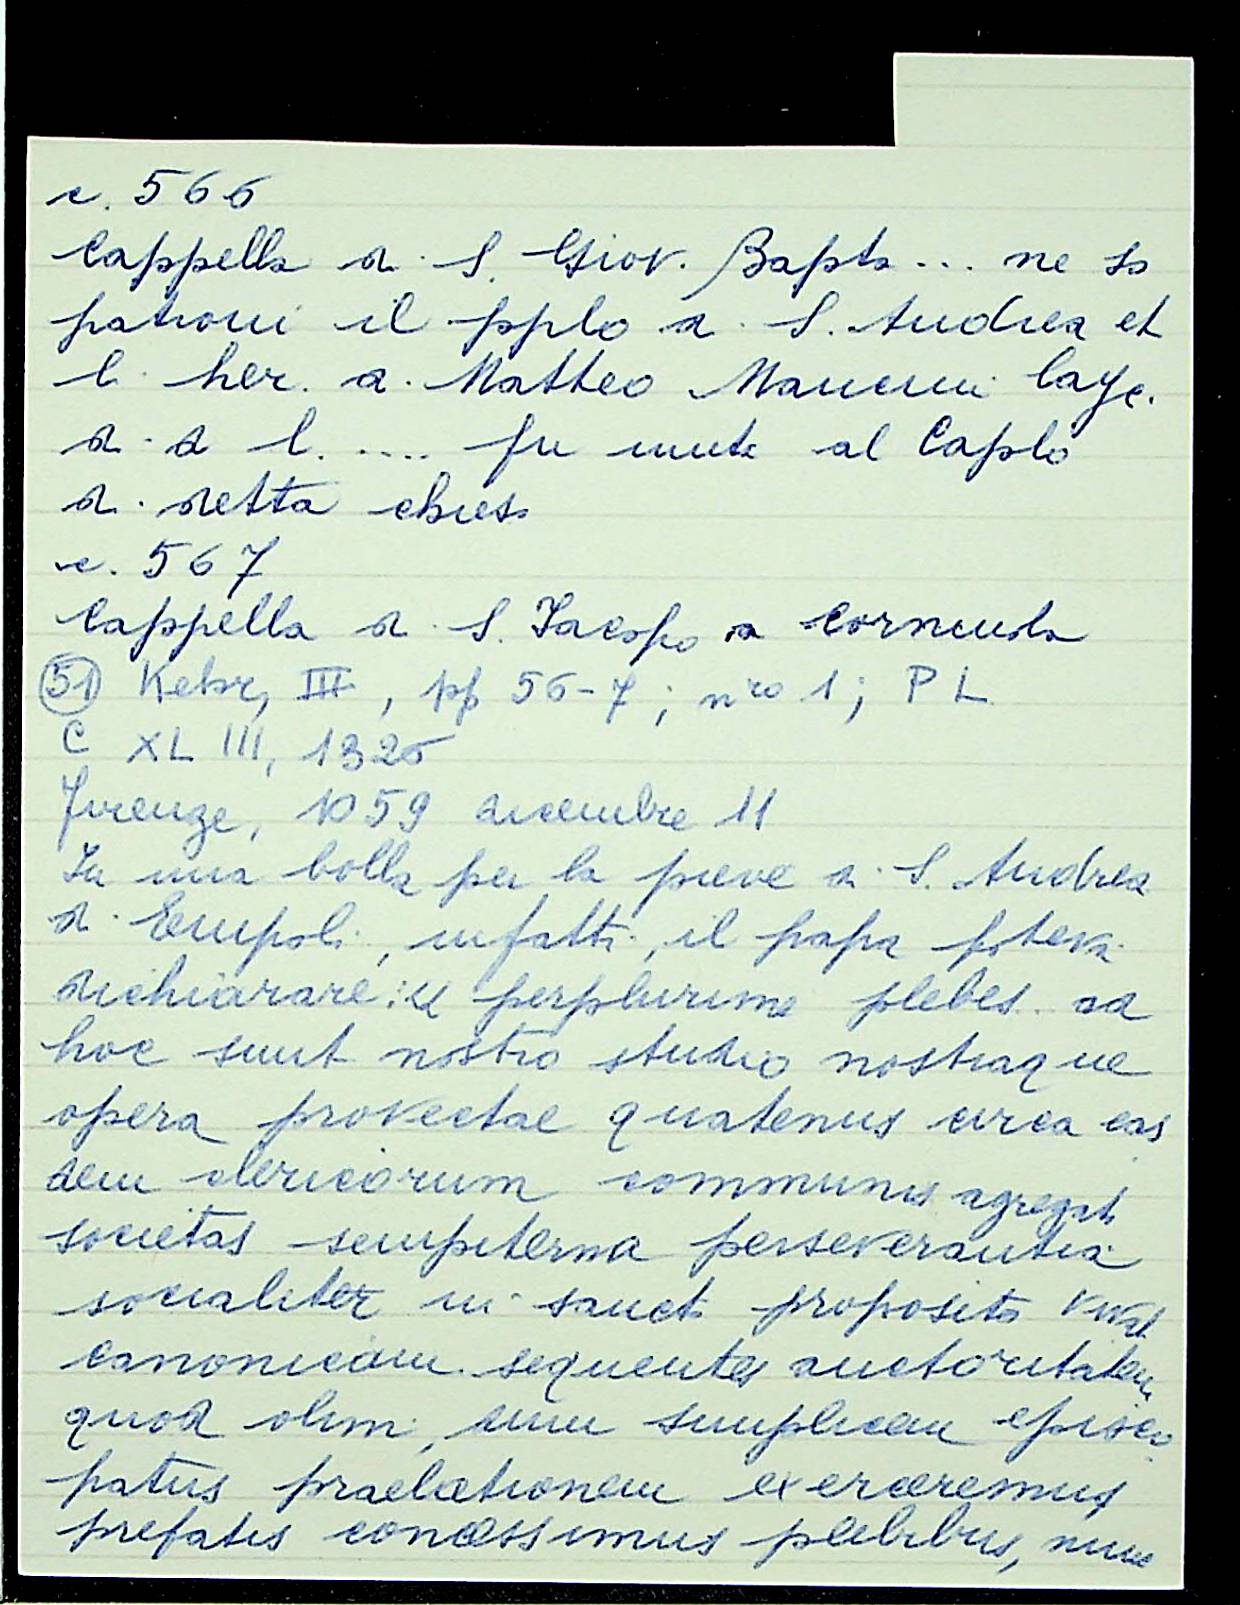 c. 566
Cappella di S. Giov. Bapta ... ne so
patroni il pplo di S. Andrea et
li her. di Matteo Mancini laye.
di d l. .... fu unita al Caplo
di detta chiesa
c. 567
Cappella di S. Jacopo a Corneuola
(51) Kehr, III, pp 56-7; nro 1; P L
C XL III, 1326
Firenze, 1059 dicembre 11
In una bolla per la pieve di S. Andrea
di Empoli, infatti, il papa poteva
dichiarare: « perplurime plebes ad
hoc sunt nostro studio nostraque
opera provectae quatenus circa eas
dem clericorum communis agregati
societas sempiterna perseverantia
socialiter in sancto proposito vivat
canonicam sequentes auctoritatem
quod olim, dum simplicem episco
patus praelationem exerceremus
prefatis concessimus plebibus, nunc